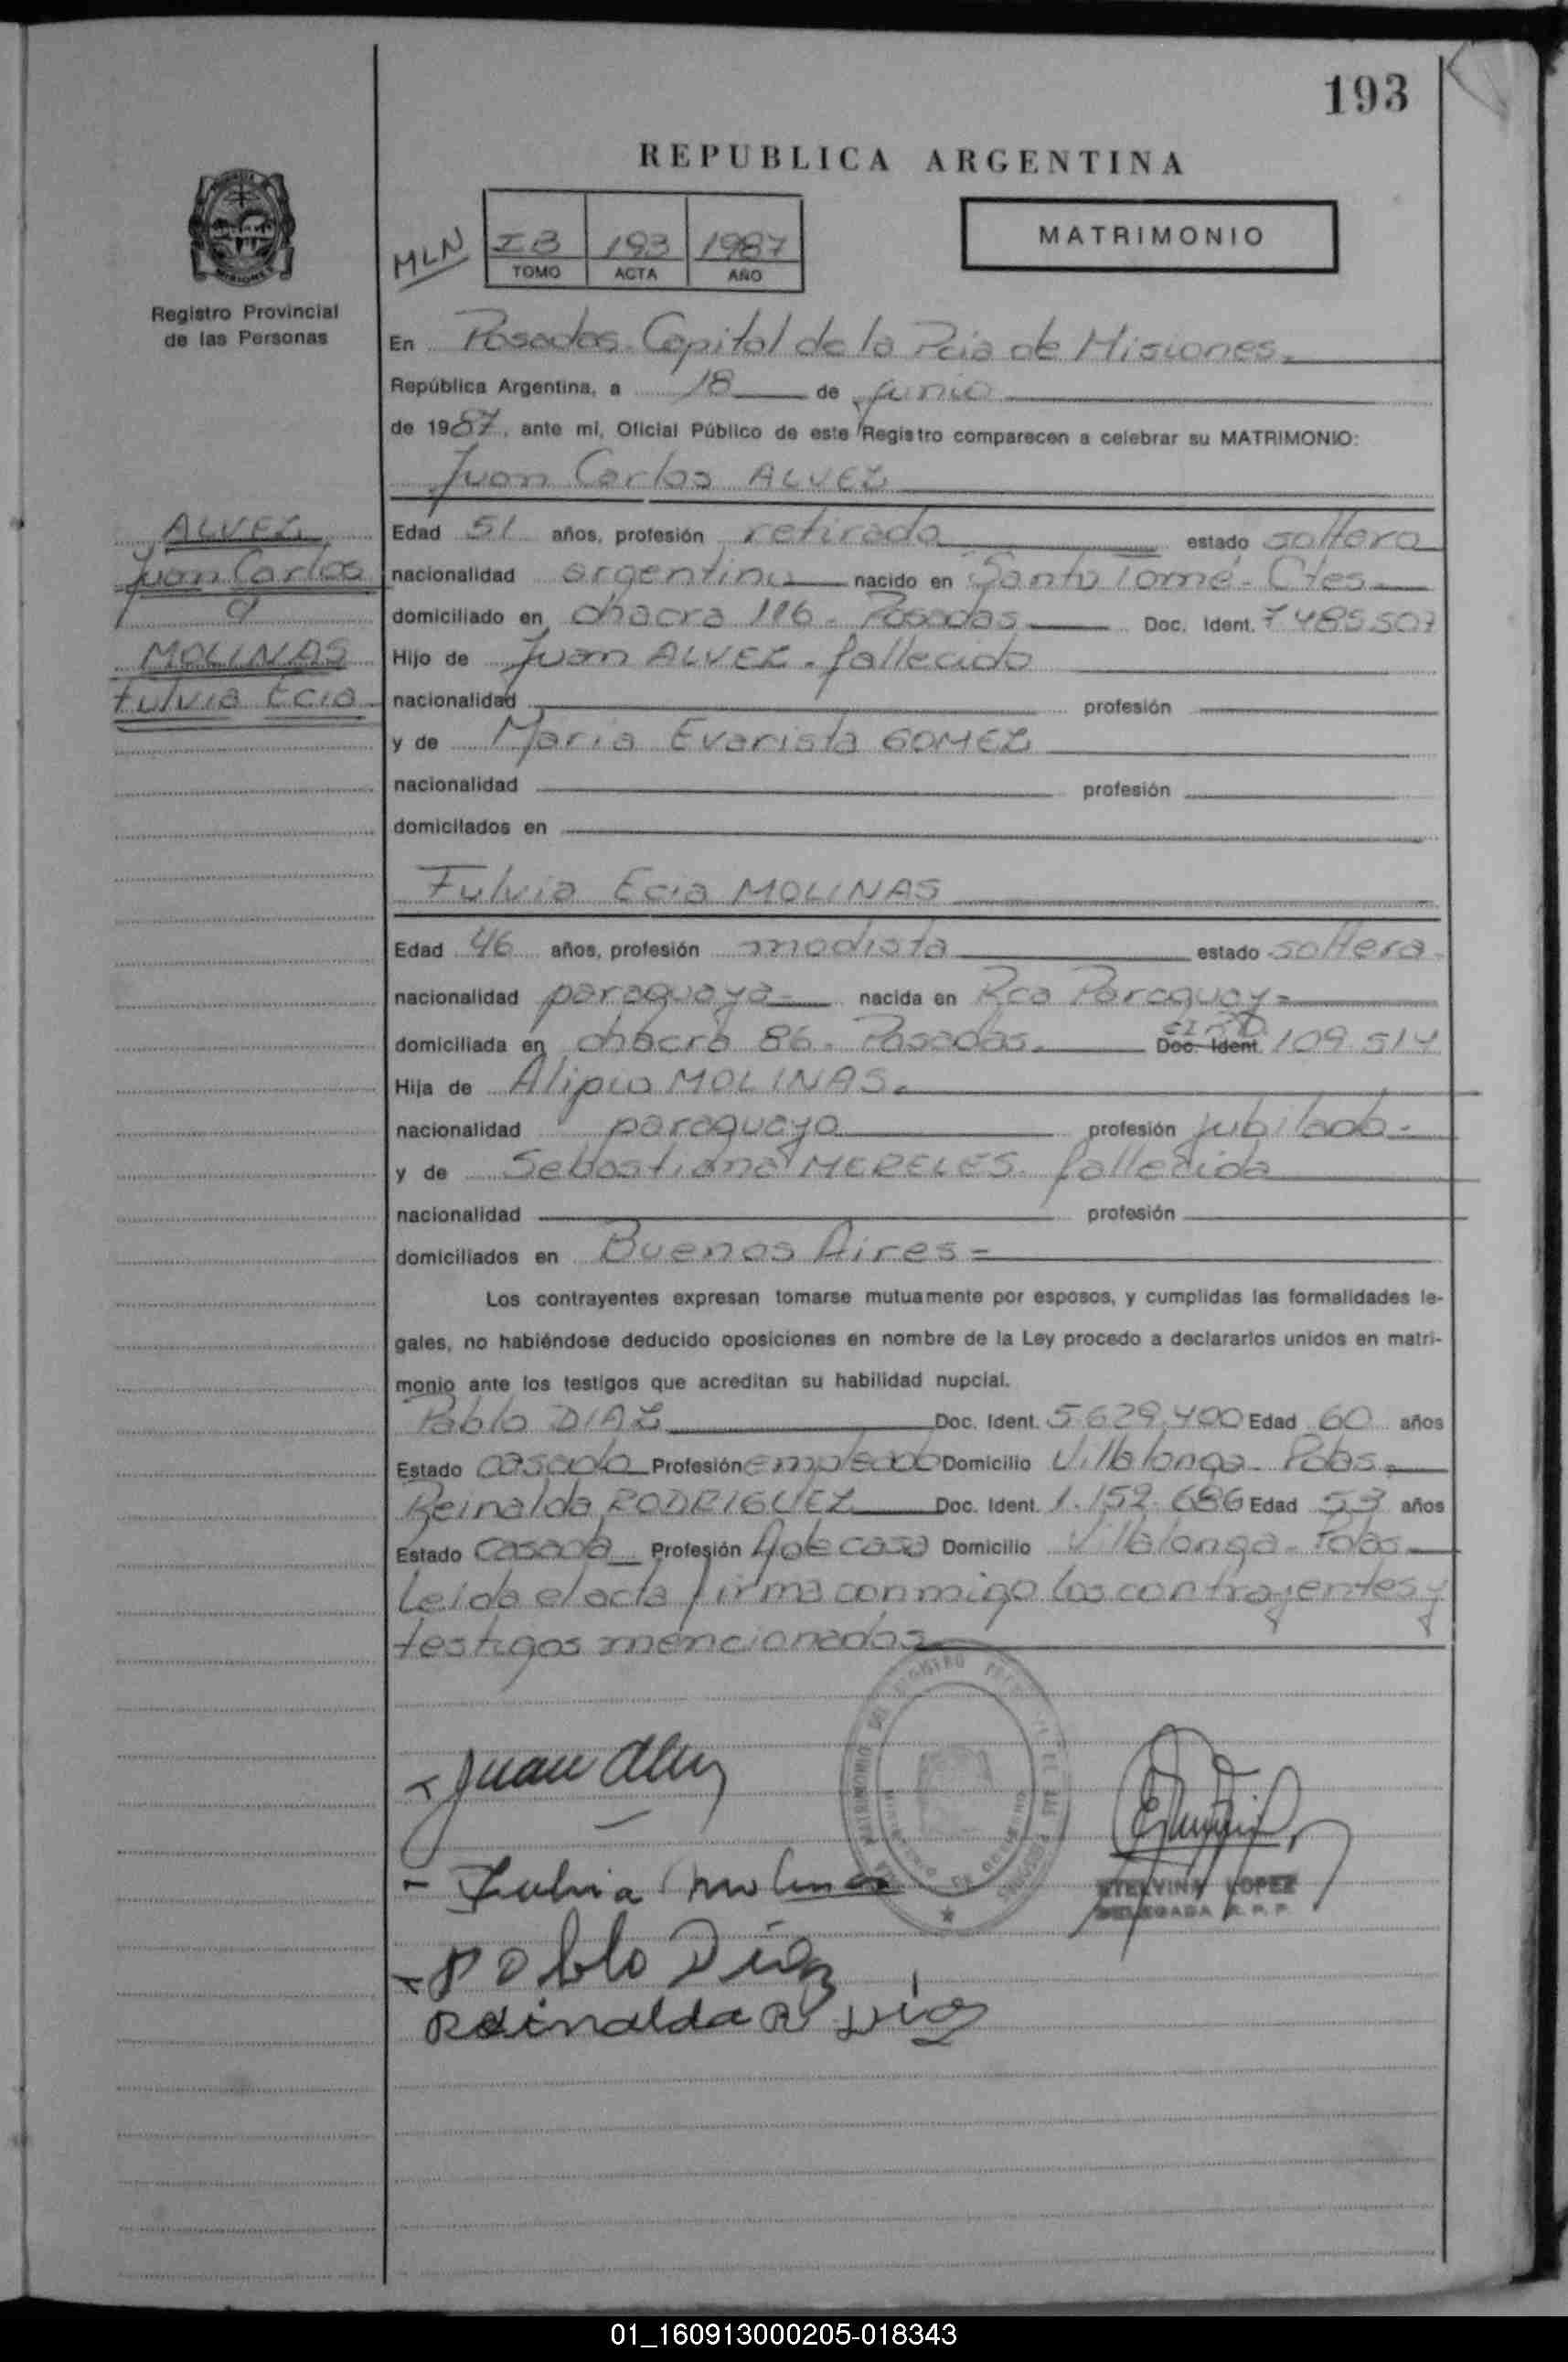 193
REPUBLICA ARGENTINA
MISIONES
Registro Provincial
de las Personas
MLN
IB 193 1987
TOMO ACTA AÑO
MATRIMONIO
En Posadas Capital de la Pcia de Misiones.
República Argentina, a 18 de junio
de 1987, ante mí, Oficial Público de este Registro comparecen a celebrar su MATRIMONIO:
Juan Carlos ALVEZ
ALVEZ
Juan Carlos
y
MOLINAS
Fulvia Ecia
Edad 51 años, profesión retirado estado soltero
nacionalidad argentino nacido en Santo Tomé - Ctes
domiciliado en chacra 116 - Posadas Doc. Ident. 7485507
Hijo de Juan ALVEZ - fallecido
nacionalidad profesión
y de Maria Evarista GOMEZ
nacionalidad profesión
domiciliados en
Fulvia Ecia MOLINAS
Edad 46 años, profesión modista estado soltera
nacionalidad paraguaya nacida en Rca Paraguay
domiciliada en chacra 86 - Posadas. Doc. Ident 109.514
Hija de Alipio MOLINAS.
nacionalidad paraguaya profesión jubilado
y de Sebastiana MERELES. fallecida
nacionalidad profesión
domiciliados en Buenos Aires
Los contrayentes expresan tomarse mutuamente por esposos, y cumplidas las formalidades le-
gales, no habiéndose deducido oposiciones en nombre de la Ley procedo a declararlos unidos en matri-
monio ante los testigos que acreditan su habilidad nupcial.
Pablo DIAZ Doc. Ident. 5.629.400 Edad 60 años
Estado casado Profesión empleado Domicilio Villalonga - Pdas.
Reinalda RODRIGUEZ Doc. Ident. 1.152.686 Edad 53 años
Estado casada Profesión A de casa Domicilio Villalonga - Pdas
Leida el acta firma conmigo los contrayentes y
testigos mencionados
Juan Alvez
Fulvia Molinas
Pablo Díaz
Reinalda R Díaz
ETELVINA LOPEZ
DELEGADA R. P. P.
01_160913000205-018343